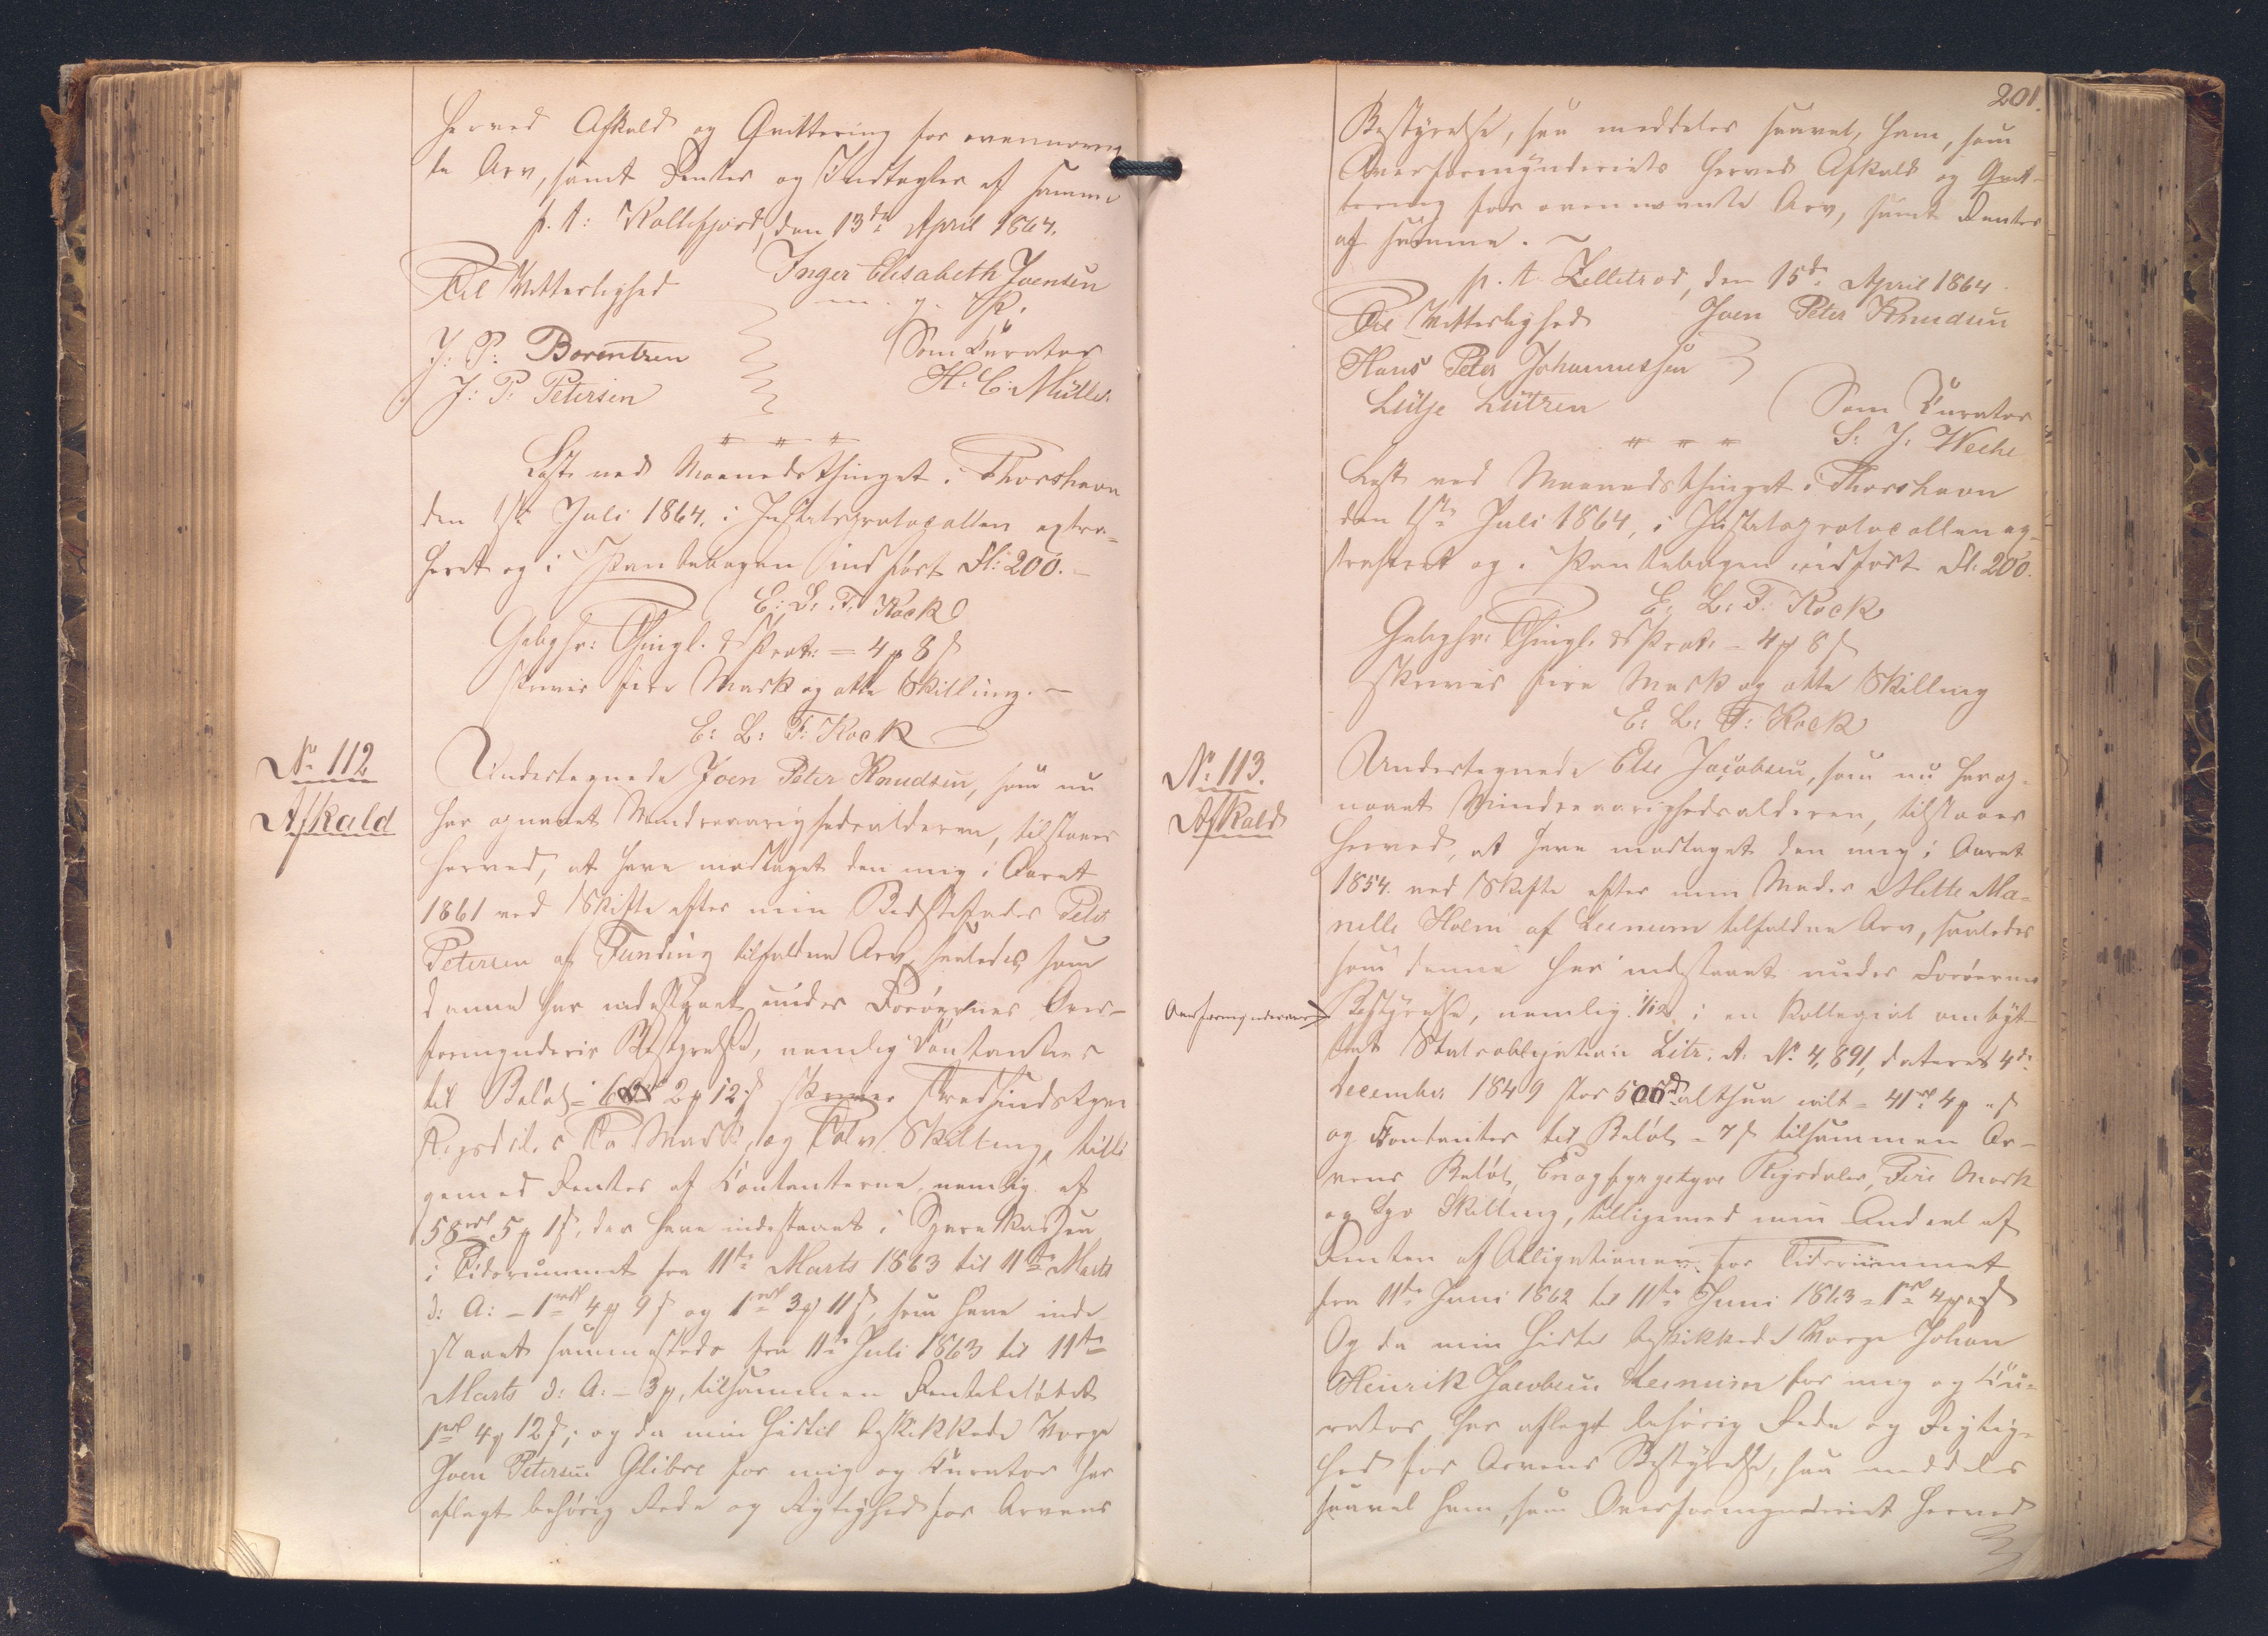 herved Afkald og Qvittering for ovennævn-
te Arv, samt Renter og Indtægter af samme
p. t: Kollefjord, den 13de April 1864.
Til Vitterlighed Inger Elisabeth Joensen
m. f. P.
J: P: Borentzen Som Curator
J: P: Petersen H: C: Müller
Læst ved Maanedsthinget i Thorshavn
den 1ste Juli 1864, i Justitsprotocollen extra-
heret og i Pantebogen indført Fl: 200.
E: L: T: Kock
Gebyhr: Thingl. & Prot: = 4 p 8 s
skriver fire Mark og otte Skilling.
E: L: T: Kock
No 112
Afkald
Undertegnede Joen Peter Knudsen, som nu
har opnaaet Mindreaarighedsalderen, tilstaaer
herved, at have modtaget den mig i Aaret
1861 ved Skifte efter min Bedstefader Peter
Petersen af Funding tilfaldne Arv, saaledes som
denne har indestaaet under Færøernes Over-
formynderies Bestyrelse, nemlig Contanter
til Beløb 2 p 12 s skriver
Rigsdaler To Mark og Tolv Skilling, tilli
gemed Renter af Contanterne, nemlig af
58 rdl 5 p 1 s, der have indestaaet i Sparekassen
i Tidsrummet fra 11te Marts 1863 til 11te Marts
d: A: - 1 rdl 4 p 9 s og 1 rdl 3 p 11 s, som have inde
staaet sammesteds fra 11te Juli 1863 til 11te
Marts d: A: - 3 p, tilsammen Rentebeløbet
1 rdl 4 p 12 s; og da min hidtil beskikkede Værge
Joen Petersen Glibre for mig og Curator har
aflagt behørig Rede og Rigtighed for Arvens
201.
Bestyrelse, saa meddeles saavel, ham, som
Overformynderiets herved Afkald og Qvit-
tering for ovennævnte Arv, samt Renter
af samme.
p. t. Zelletrød, den 15de April 1864.
Til Vitterlighed Joen Peter Knudsen
Hans Peter Johannessen
Lütje Lützen Som Curator
S: J: Weihe
Læst ved Maanedsthinget i Thorshavn
den 1ste Juli 1864, i Justitsprotocollen ex-
traheret og i Pantebogen indført Fl: 200.
E: L: T: Kock
Gebyhr: Thingl. & Prot: = 4 p 8 s
skriver fire Mark og otte Skilling
E: L: T: Kock
No 113.
Afkald
Undertegnede Else Jacobsen, som nu har op-
naaet Mindreaarighedsalderen, tilstaaer
herved, at have modtaget den mig i Aaret
1854 ved Skifte efter min Moder Mette Ma-
nelle Holm af Leinum tilfaldne Arv, saaledes
som denne har indestaaet under Færøernes
Overformynderies
Bestyrelse, nemlig 1/12 i en Kollegial ombyt-
tet Statsobligation Litr. A. No 4,891, dateret 4de
December 1849 stor 500 rd altsaa 41 rdl 4 p s
og Contanter til Beløb = 7 s tilsammen Ar-
vens Beløb, Enogfyrgetyve Rigsdaler, Fire Mark
og Syv Skilling, tilligemed min Andeel af
Renten af Obligationen for Tidsrummet
fra 11te Juni 1862 til 11te Juni 1863 = 1 rdl 4 p s
Og da min hidtil beskikkede Værge Johan
Heinrik Jacobsen Leinum for mig og Cu-
rator har aflagt behørig Rede og Rigtig-
hed for Arvens Bestyrelse, saa meddeles
saavel ham, som Overformynderiet herved